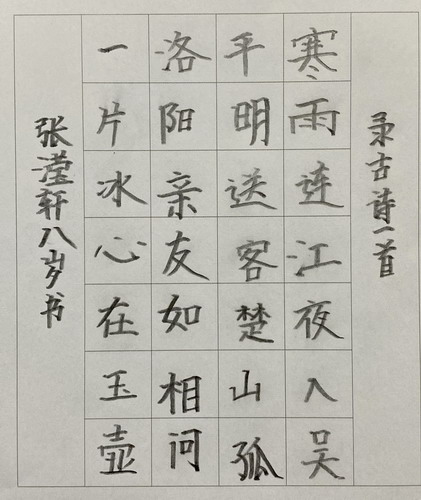 录古诗一首
寒雨连江夜入吴
平明送客楚山孤
洛阳亲友如相问
一片冰心在玉壶
张滢轩八岁书